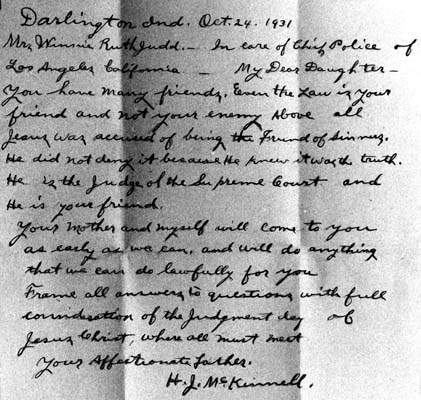 Darlington Ind. Oct. 24. 1931
Mrs. Winnie Ruth Judd. – In care of Chief Police of
Los Angeles California – My Dear Daughter –
You have many friends, Even the Law is your
friend and not your enemy Above all
Jesus was accused of being the Friend of Sinners.
He did not deny it because He knew it was the truth.
He is the Judge of the Supreme Court and
He is your friend.
Your Mother and myself will come to you
as early as we can, and will do anything
that we can do lawfully for you
Frame all answers to questions with full
consideration of the Judgment day of
Jesus Christ, where all must meet
Your Affectionate Father.
H. J. McKinnell.